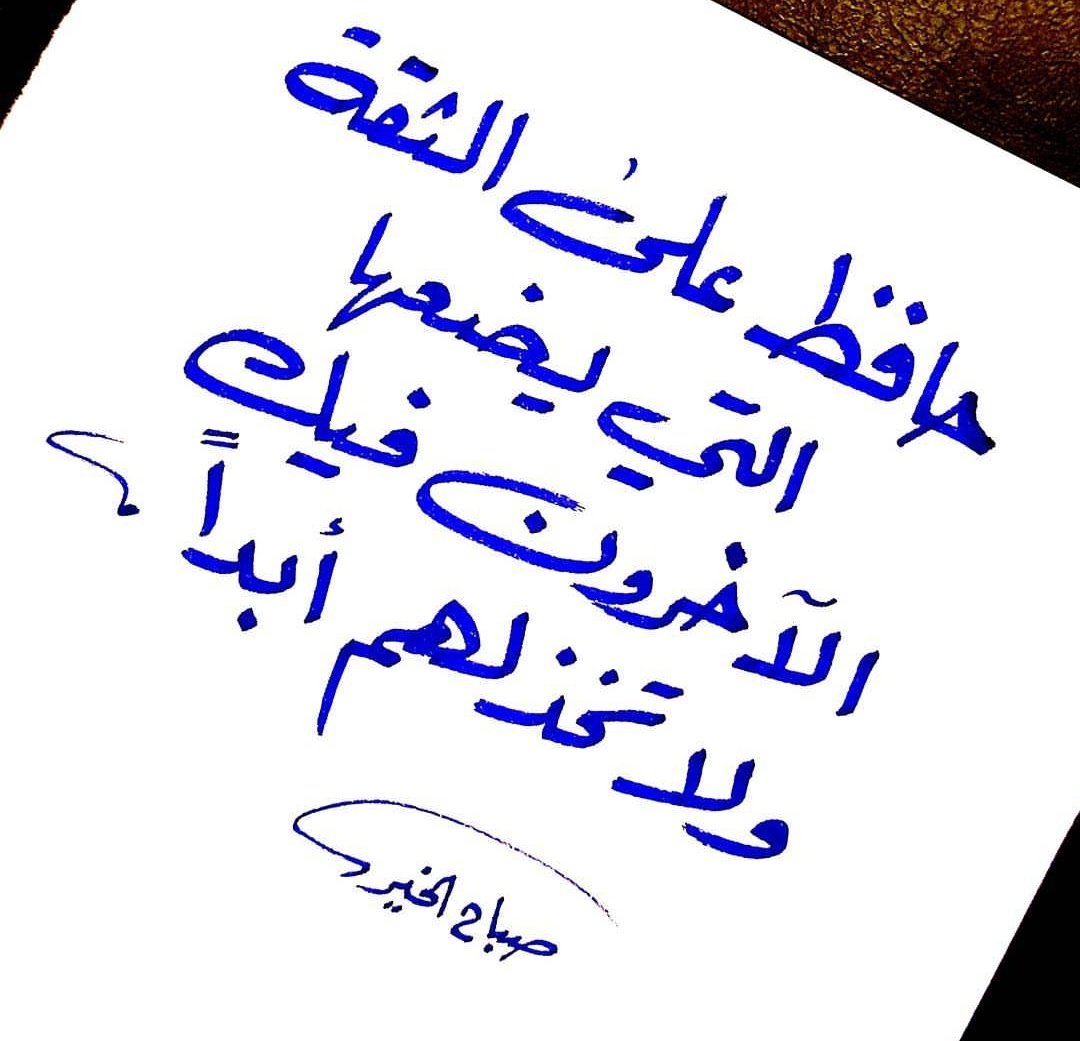 حافظ على الثقة
التي يضعها
الآخرون فيك
ولا تخذلهم أبداً
صباح الخير